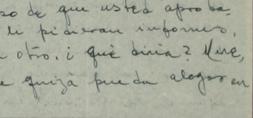 so de que usted aproba
le pidieran informes,
otro, ¿ qué diria? Mire,
e quizá pueda alegar en